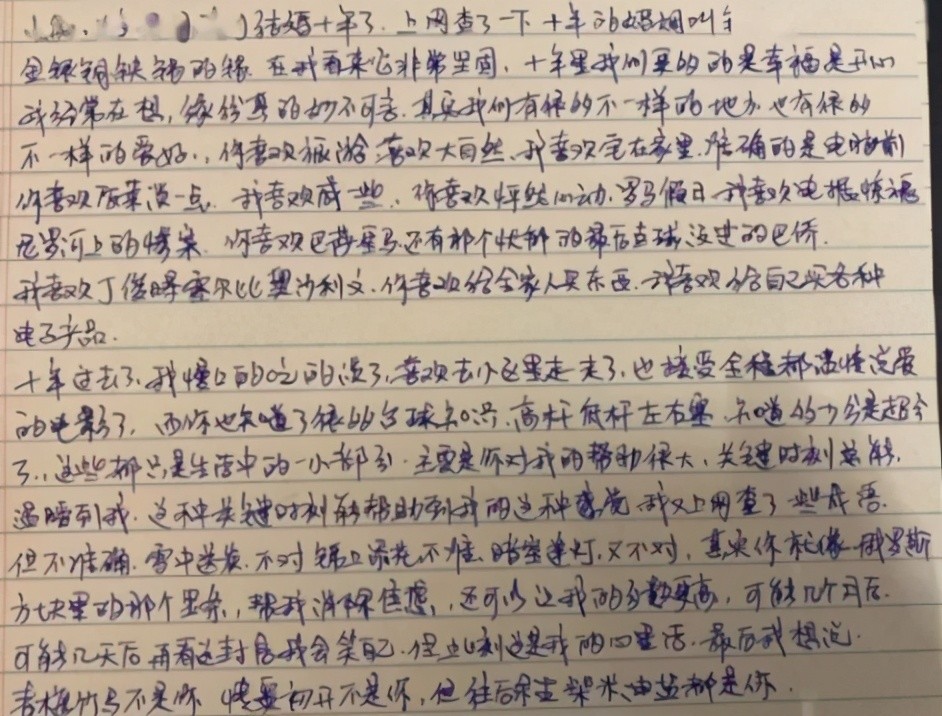 结婚十年了.上网查了一下十年的婚姻叫
金银铜铁锡的锡.在我看来它非常坚固,十年里我们更多的是幸福是开心
我经常在想,缘分真的妙不可言.其实我们有很多不一样的地方也有很多
不一样的爱好.,你喜欢旅游喜欢大自然、我喜欢宅在家里.准确的是电脑前
你喜欢做菜淡一点.我喜欢咸一些.你喜欢怦然心动.罗马假日.我喜欢电锯惊魂
尼罗河上的惨案.你喜欢巴蒂 还有那个 的最后点球没进的巴乔.
我喜欢丁俊晖塞尔比奥沙利文.你喜欢给全家人买东西.我喜欢给自己买各种
电子产品.
十年过去了,我慢口的吃的淡了,喜欢去小区里走走了,也接受全程都温情没爱
的电影了,而你也知道了很多台球知识.高杆低杆左右塞.知道多少分是超分
了.,这些都只是生活中的一小部分.主要是你对我的帮助很大,关键时刻总能
温暖到我.这种关键时刻能帮助到我的这种感觉.我又上网查了一些成语.
但不准确.雪中送炭.不对 锦上添花不准.暗室逢灯.又不对,其实你就像一俄罗斯
方块里的那个竖条,帮我消除焦虑,还可以让我的分数更高,可能几个月后.
可能几天后再看这封信我会笑自己.但此刻这是我的心里话.最后我想说.
青梅竹马不是你 情窦初开不是你,但往后余生柴米油盐都是你.